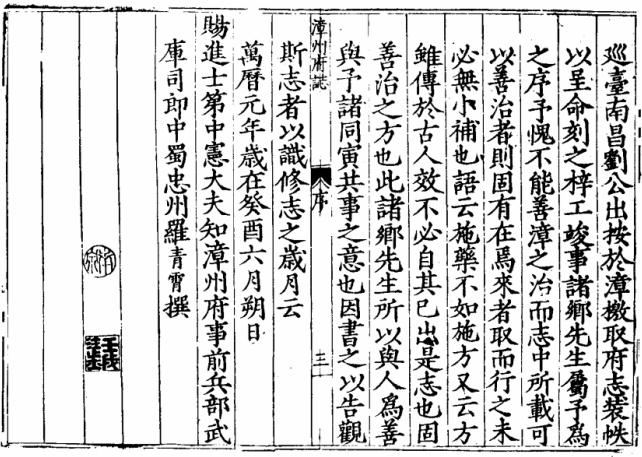 巡臺南昌劉公出按於漳檄取府志裝帙
以呈命刻之梓工竣事諸鄉先生屬予為
之序予愧不能善漳之治而志中所載可
以善治者則固有在焉來者取而行之未
必無小補也語云施藥不如施方又云方
雖傳於古人效不必自其已出是志也固
善治之方也此諸鄉先生所以與人為善
與予諸同寅共事之意也因書之以告觀
漳州府誌
序
三
斯志者以識修志之歲月云
萬曆元年歲在癸酉六月朔日
賜進士第中憲大夫知漳州府事前兵部武
庫司郎中蜀忠州羅青霄撰